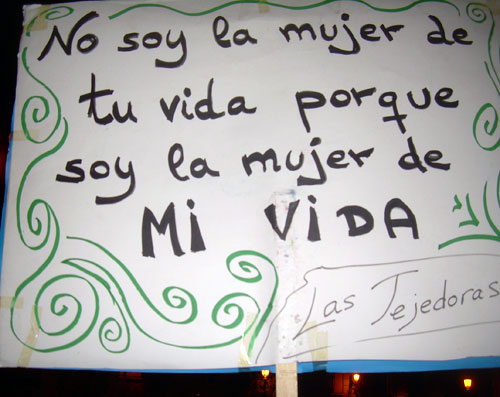 No soy la mujer de
tu vida porque
soy la mujer de
Mi ViDA
Las Tejedoras